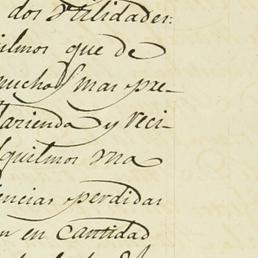 dos utilidades:
uilmos que de
mucho mas pre-
Hacienda y reci-
squilmos ma
encias perdidas
n en cantidad